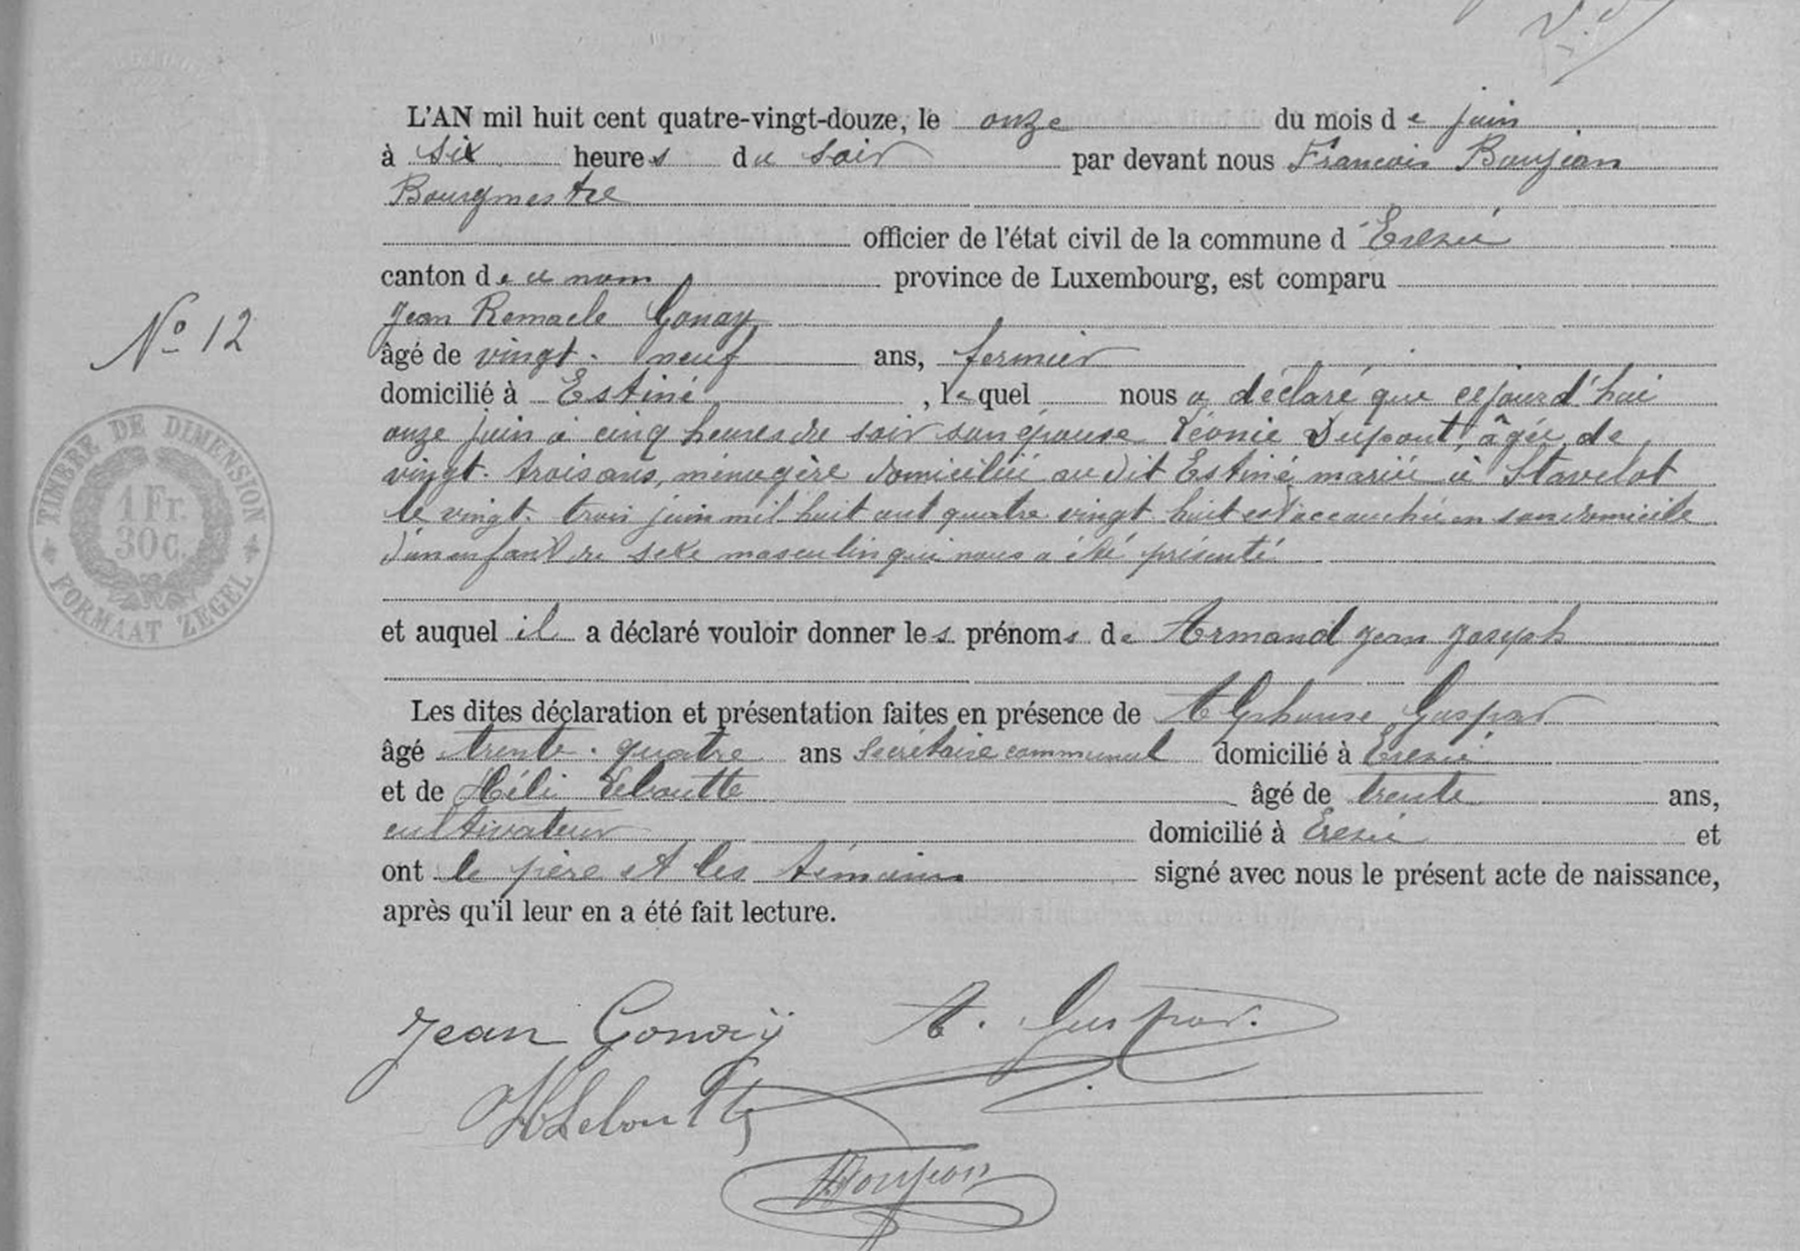 L'AN mil huit cent quatre-vingt-douze, le onze du mois de juin
à six heures du soir par devant nous Francois Baujean
Bourgmestre
officier de l'état civil de la commune d'Erezée
canton de ce nom province de Luxembourg, est comparu
Jean Remacle Gonay
N° 12
âgé de vingt-neuf ans, fermier
domicilié à Estiné, lequel nous a déclaré que cejourd'hui
onze juin à cinq heures du soir son épouse Léonie Dupont, âgée de
vingt-trois ans, ménagère domiciliée au dit Estiné mariée à Stavelot
le vingt-trois juin mil huit cent quatre vingt huit est accouchée en son domicile
d'un enfant du sexe masculin qui nous a été présenté
TIMBRE DE DIMENSION
1 Fr.
30 c.
FORMAAT ZEGEL
et auquel il a déclaré vouloir donner les prénoms de Armand Jean Joseph
Les dites déclaration et présentation faites en présence de Alphonse Gaspar
âgé trente-quatre ans secrétaire communal domicilié à Erezée
et de Héli Leboutte âgé de trente ans,
cultivateur domicilié à Erezée et
ont le père et les témoins signé avec nous le présent acte de naissance,
après qu'il leur en a été fait lecture.
Jean Gonaÿ A. Gaspar.
H Leboutte
Baujean